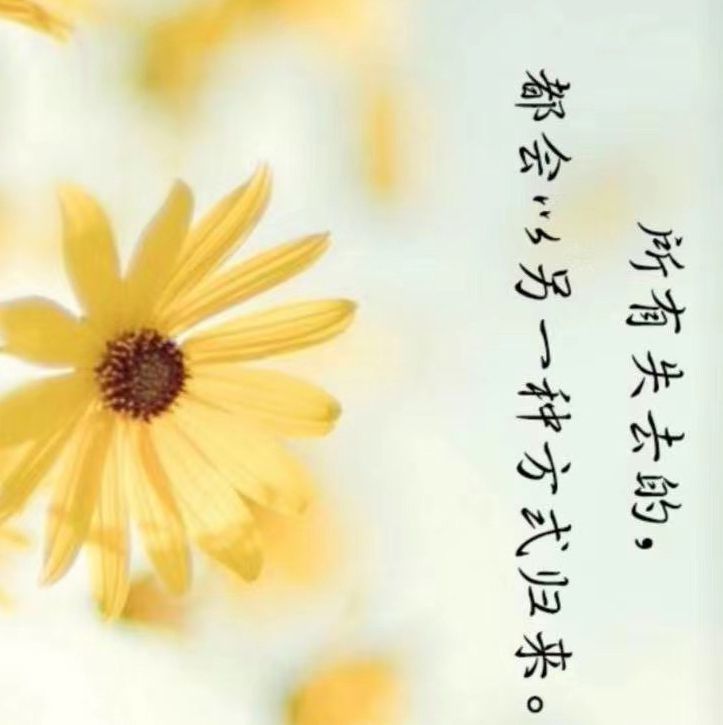 所有失去的,
都会以另一种方式归来。